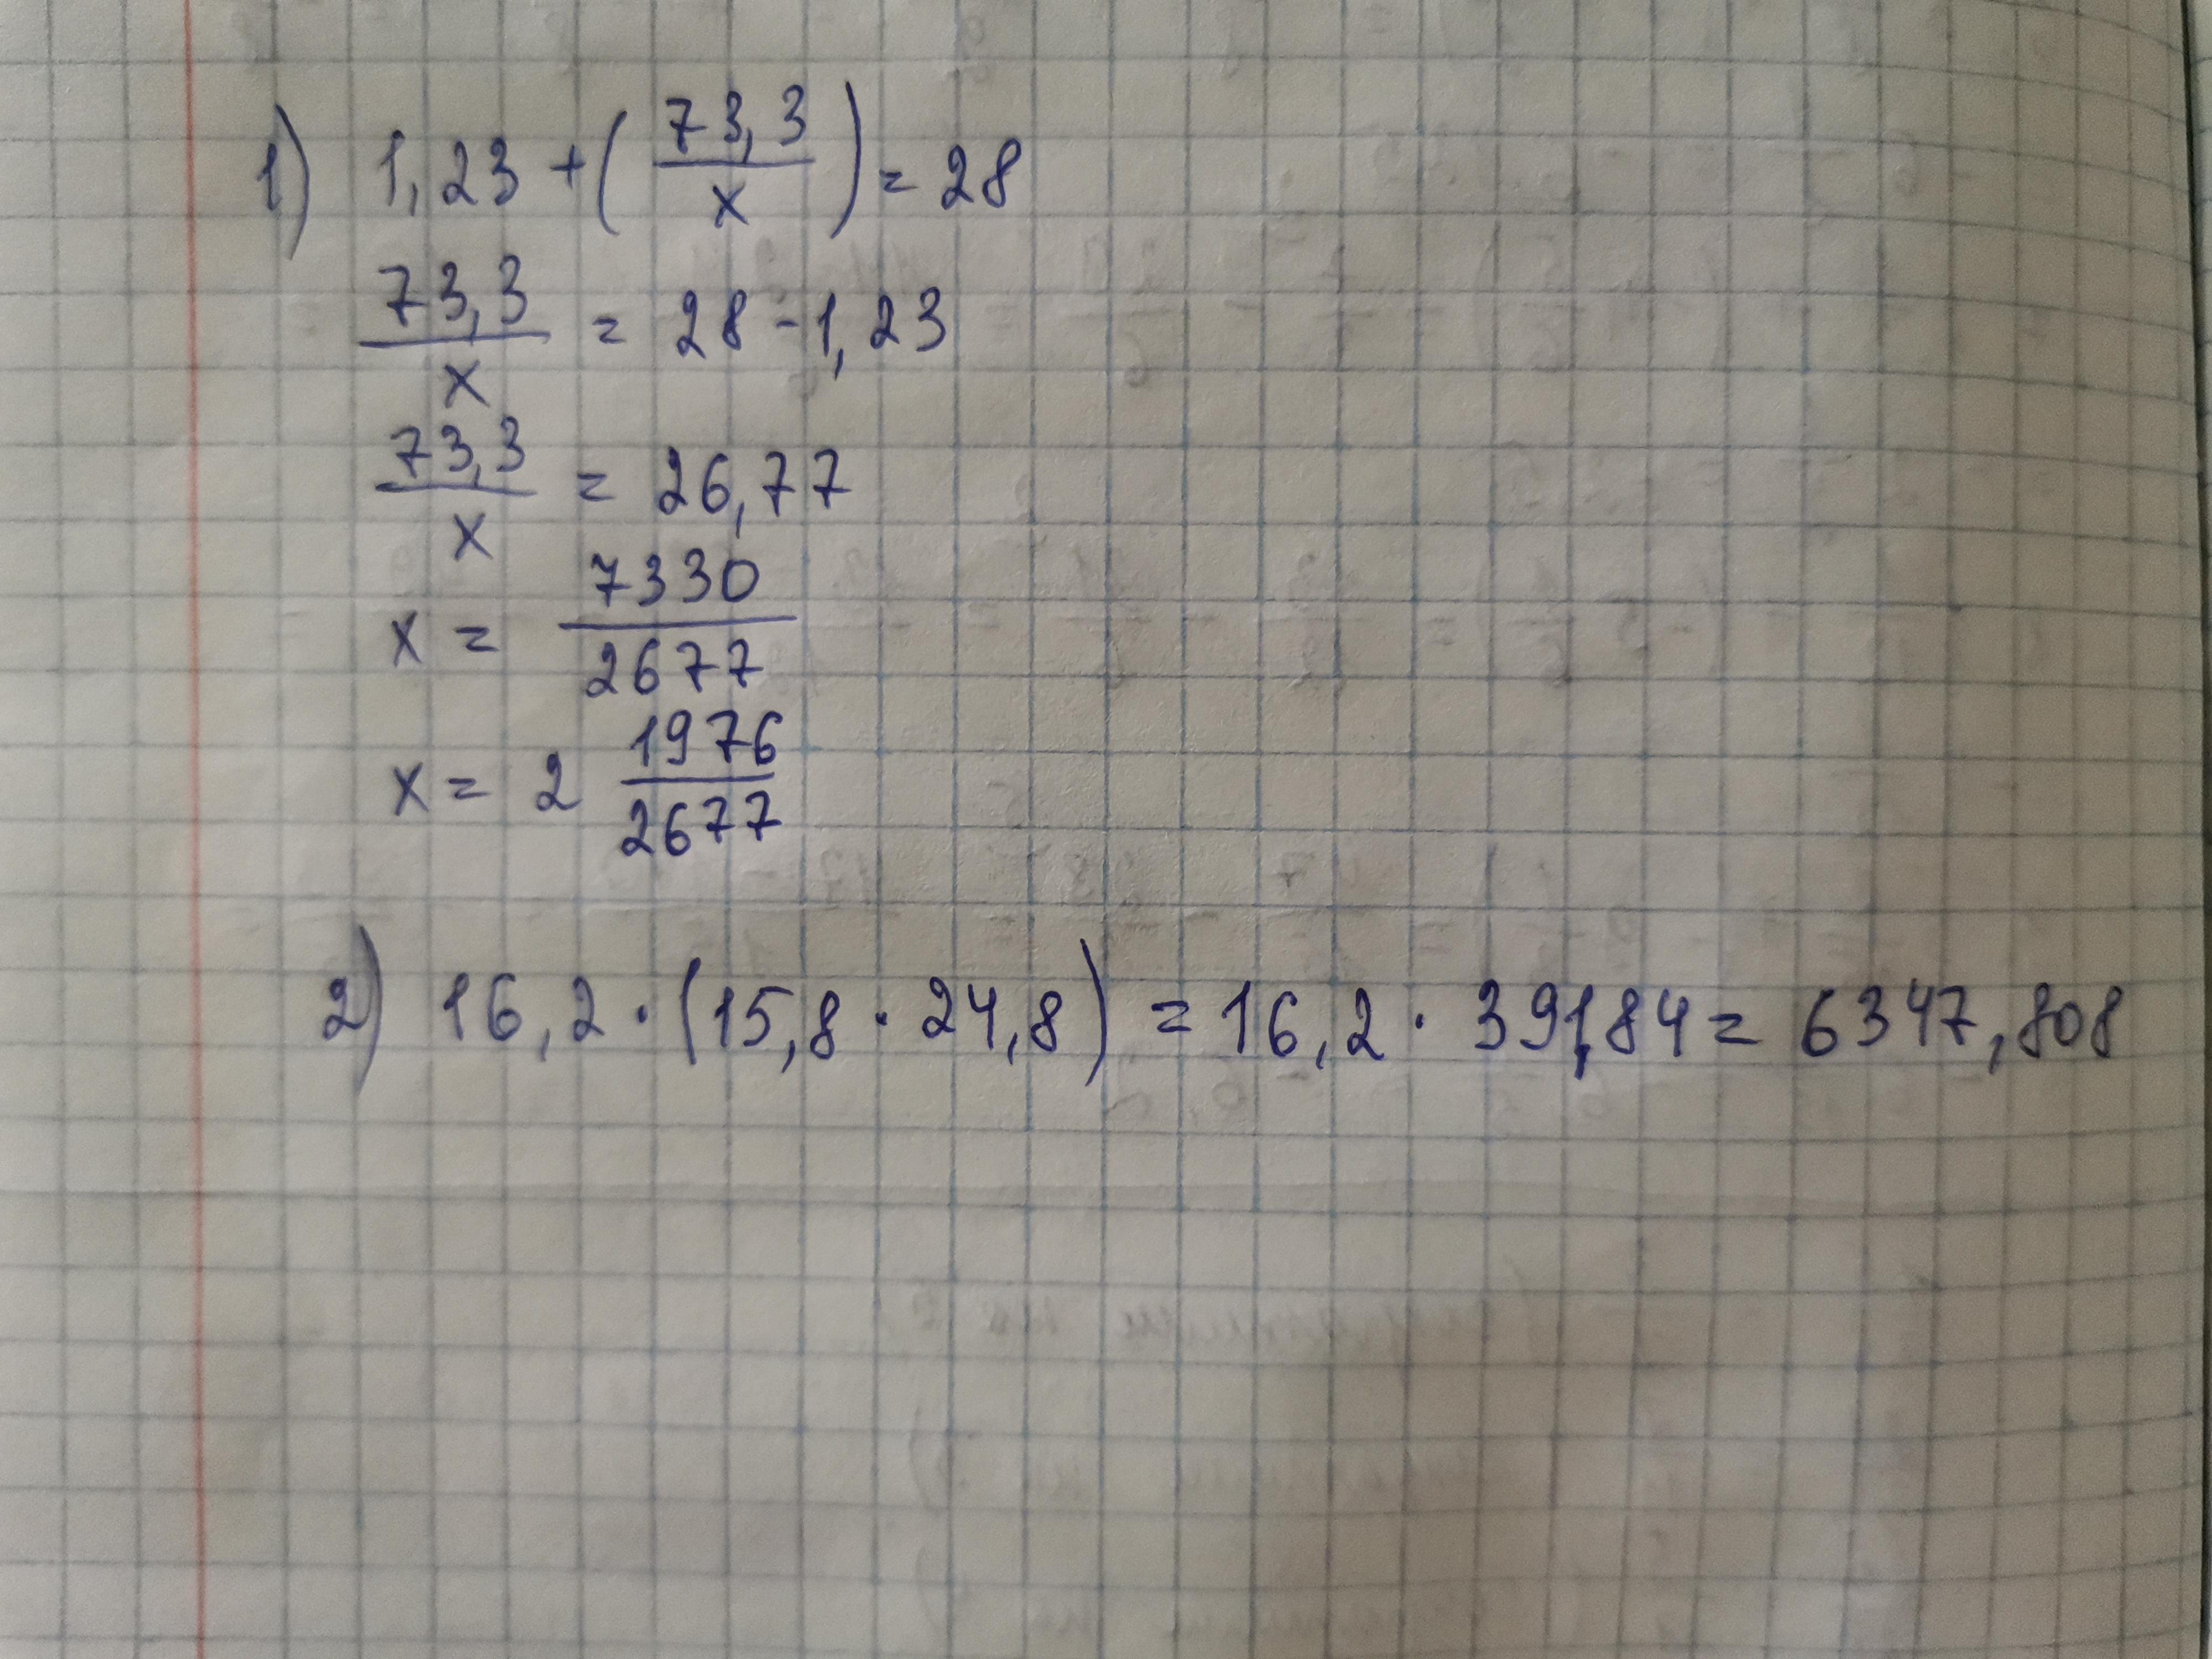 1) 1,23 + ( 73,3 / x ) = 28
73,3 / x = 28 - 1,23
73,3 / x = 26,77
x = 7330 / 2677
x = 2 1976 / 2677
2) 16,2 · (15,8 · 24,8) = 16,2 · 391,84 = 6347,808